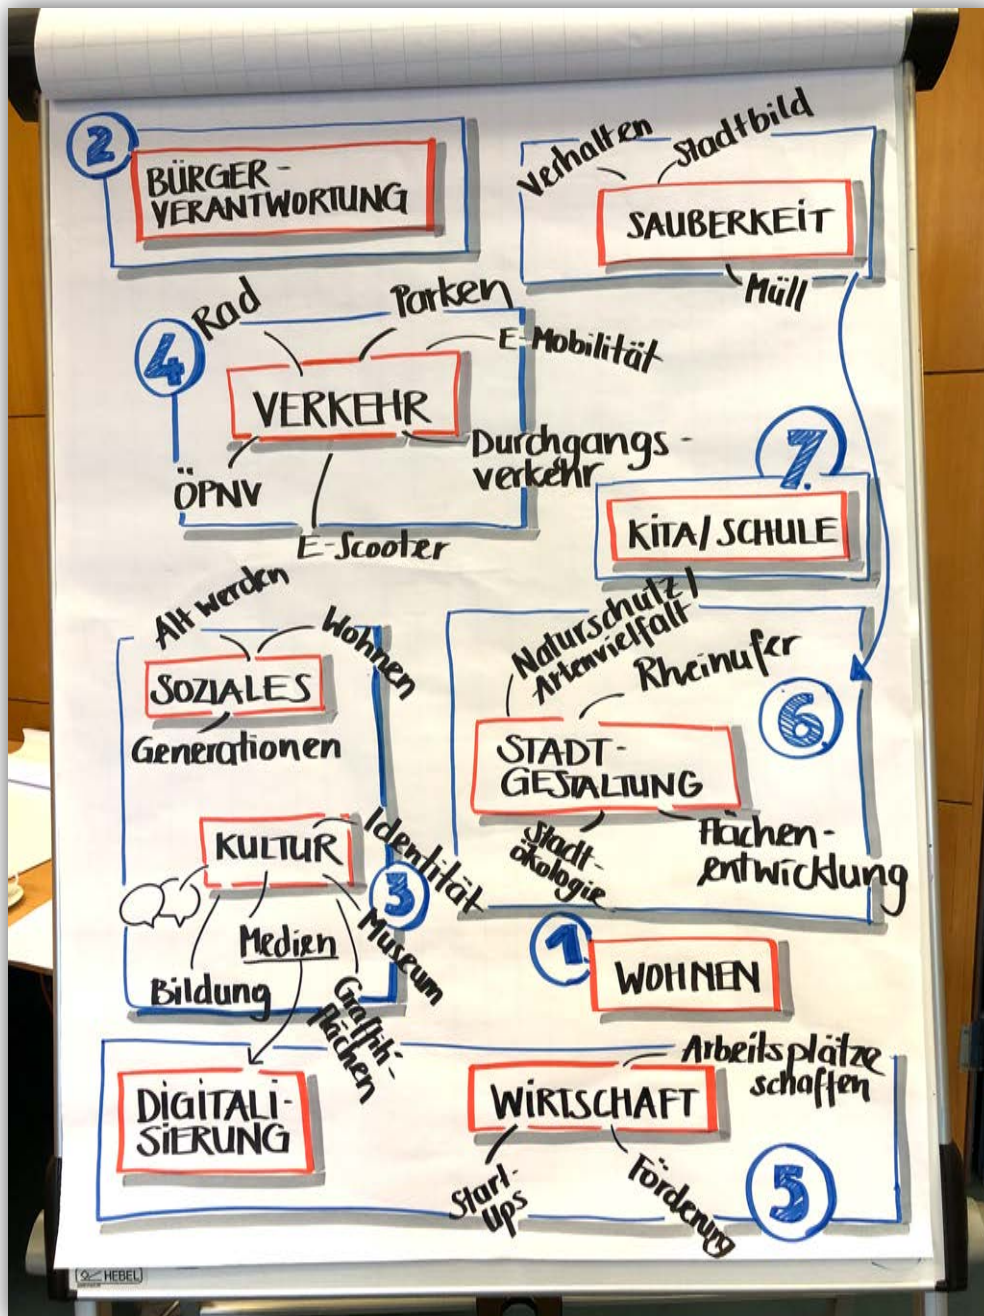 2
BÜRGER-
VERANTWORTUNG
Verhalten
Stadtbild
SAUBERKEIT
Müll
4
Rad
Parken
E-Mobilität
VERKEHR
Durchgangs-
verkehr
ÖPNV
E-Scooter
7.
KITA/SCHULE
Alt werden
Wohnen
SOZIALES
Generationen
KULTUR
Identität
3
Museum
Medien
Bildung
Graffiti-
flächen
Naturschutz/
Artenvielfalt
Rheinufer
6
STADT-
GESTALTUNG
Stadt-
ökologie
Flächen-
entwicklung
1
WOHNEN
DIGITALI-
SIERUNG
WIRTSCHAFT
Arbeitsplätze
schaffen
Start-
Ups
Förderung
5
HEBEL